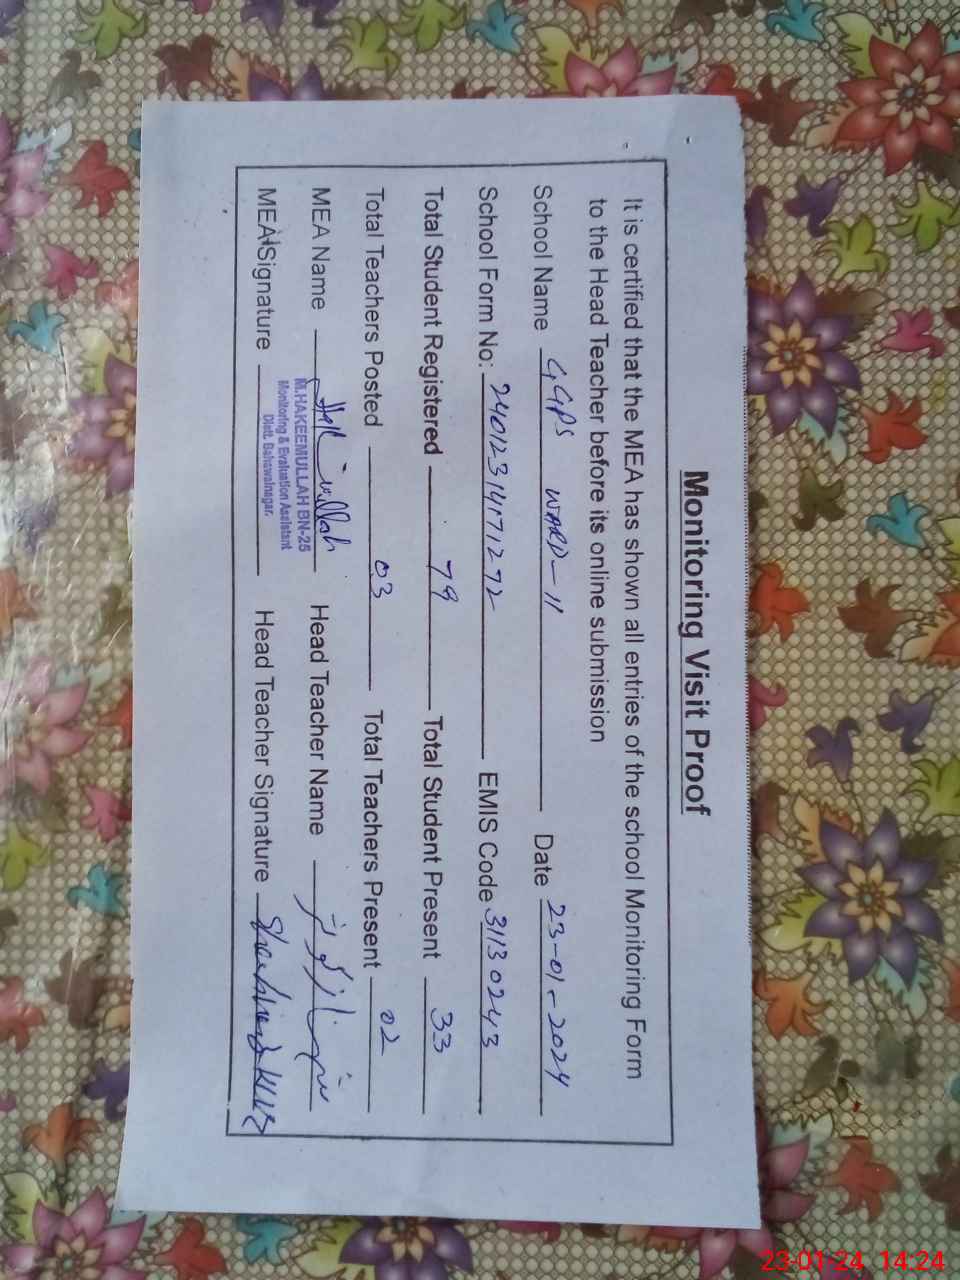 Monitoring Visit Proof
It is certified that the MEA has shown all entries of the school Monitoring Form
to the Head Teacher before its online submission
School Name GGPS WARD-11 Date 23-01-2024
School Form No: 24012314171272 EMIS Code 31130243
Total Student Registered 79 Total Student Present 33
Total Teachers Posted 03 Total Teachers Present 02
MEA Name Head Teacher Name
M.HAKEEMULLAH BN-25
Monitoring & Evaluation Assistant
Distt. Bahawalnagar.
MEA Signature Head Teacher Signature
23-01-24 14:24